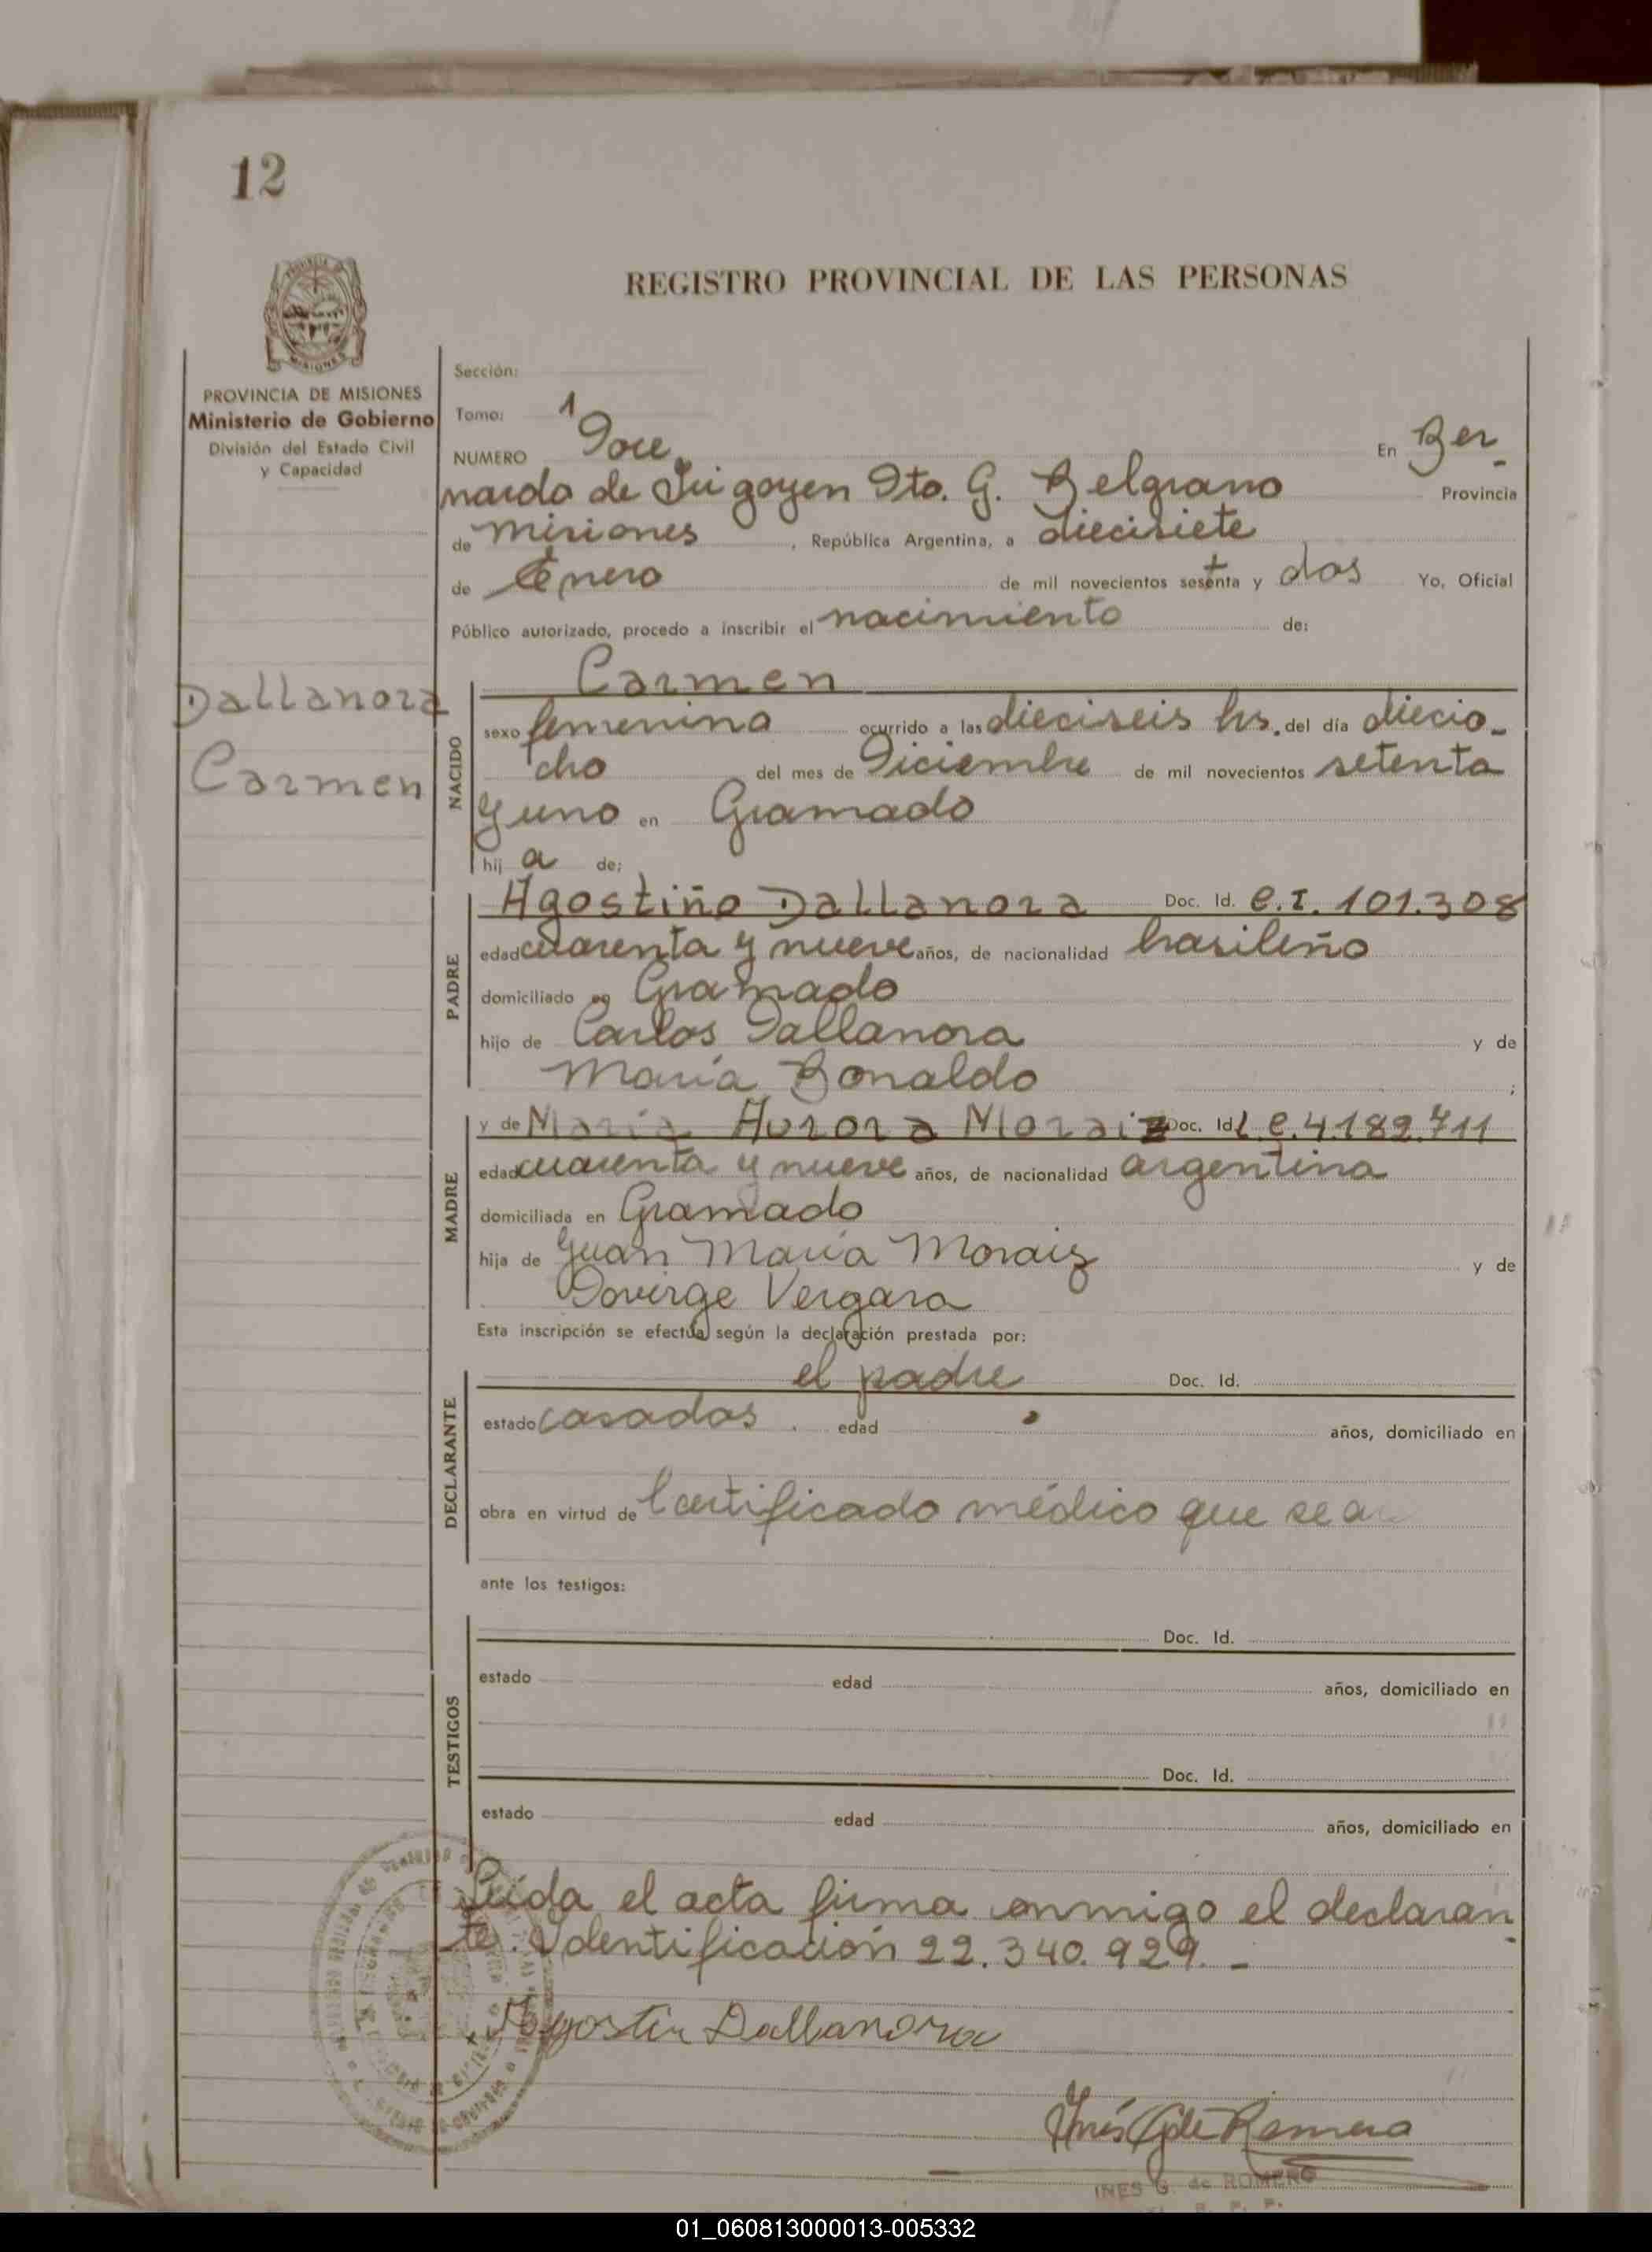 12
REGISTRO PROVINCIAL DE LAS PERSONAS
PROVINCIA DE MISIONES
Ministerio de Gobierno
División del Estado Civil
y Capacidad
Sección:
Tomo: 1
NUMERO Doce En Ber-
nardo de Irigoyen Dto. G. Belgrano Provincia
de Misiones, República Argentina, a diecisiete
de Enero de mil novecientos setenta y dos Yo, Oficial
Público autorizado, procedo a inscribir el nacimiento de:
Dallanora
Carmen
NACIDO
Carmen
sexo femenino ocurrido a las dieciseis hs. del día diecio-
cho del mes de Diciembre de mil novecientos setenta
y uno en Gramado
hij a de:
PADRE
Agostiño Dallanora Doc. Id. C.I. 101.308
edad cuarenta y nueve años, de nacionalidad brasileño
domiciliado en Gramado
hijo de Carlos Dallanora y de
María Bonaldo ;
MADRE
y de María Aurora Moraiz Doc. Id. L C. 4.182.711
edad cuarenta y nueve años, de nacionalidad argentina
domiciliada en Gramado
hija de Juan María Moraiz y de
Dovirge Vergara
Esta inscripción se efectúa según la declaración prestada por:
DECLARANTE
el padre Doc. Id.
estado casados. edad años, domiciliado en
obra en virtud de Certificado médico que se
ante los testigos:
TESTIGOS
Doc. Id.
estado edad años, domiciliado en
Doc. Id.
estado edad años, domiciliado en
Leída el acta firma conmigo el declaran-
te. Identificación 22.340.929.-
Agostin Dallanora
Inés G de Romero
INES G. de ROMERO
01_060813000013-005332